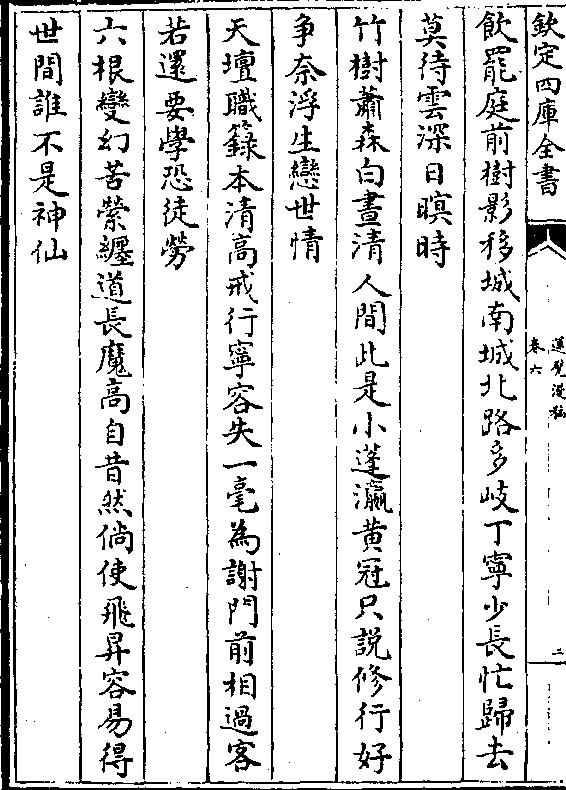 欽定四庫全書
蓮龕漫稿
卷六
二
飲罷庭前樹影移城南城北路多岐丁寧少長忙歸去
莫待雲深日暝時
竹樹蕭森白晝清人間此是小蓬瀛黃冠只説修行好
争奈浮生戀世情
天壇職籙本清高戒行寧容失一毫為謝門前相過客
若還要學恐徒勞
六根變幻苦縈纒道長魔高自昔然倘使飛昇容易得
世間誰不是神仙